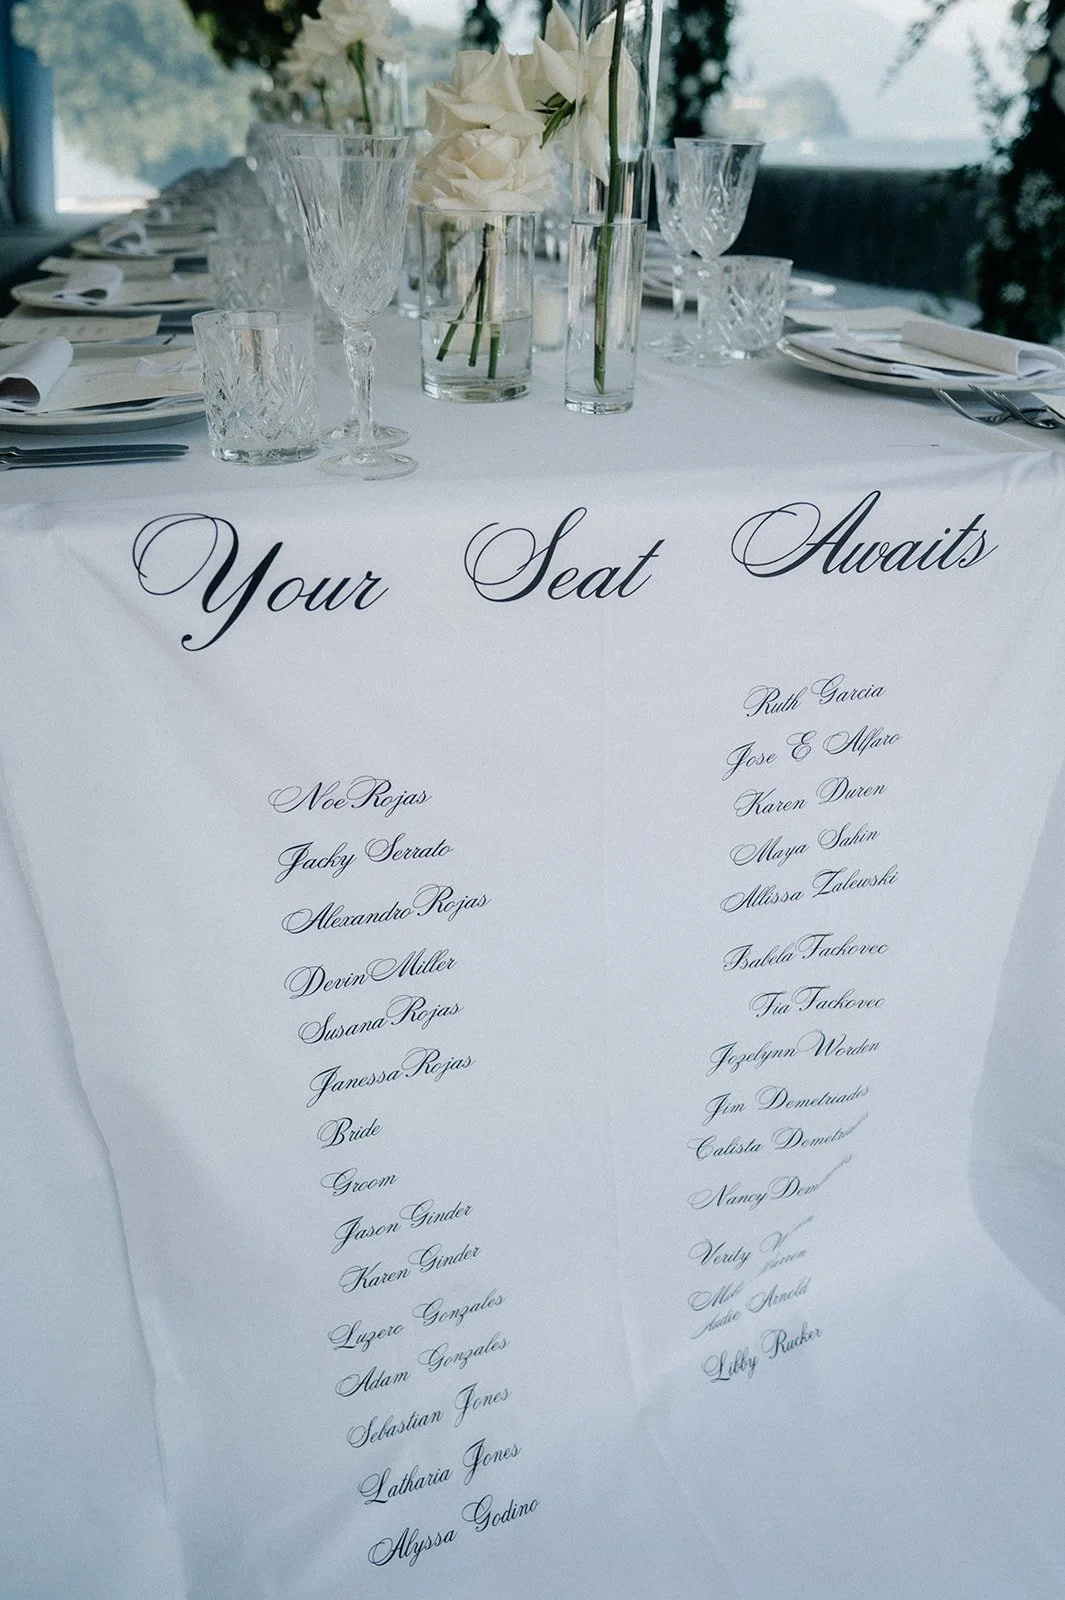 Your Seat Awaits
Noe Rojas
Jacky Serrato
Alexandro Rojas
Devin Miller
Susana Rojas
Janessa Rojas
Bride
Groom
Jason Ginder
Karen Ginder
Luzero Gonzales
Adam Gonzales
Sebastian Jones
Latharia Jones
Alyssa Godino
Ruth Garcia
Jose E Alfaro
Karen Duren
Maya Sahin
Allissa Zalewski
Isabela Tackovec
Tia Tackovec
Jozelynn Worden
Jim Demetriades
Calista
Nancy
Verity
Arnold
Libby Rucker